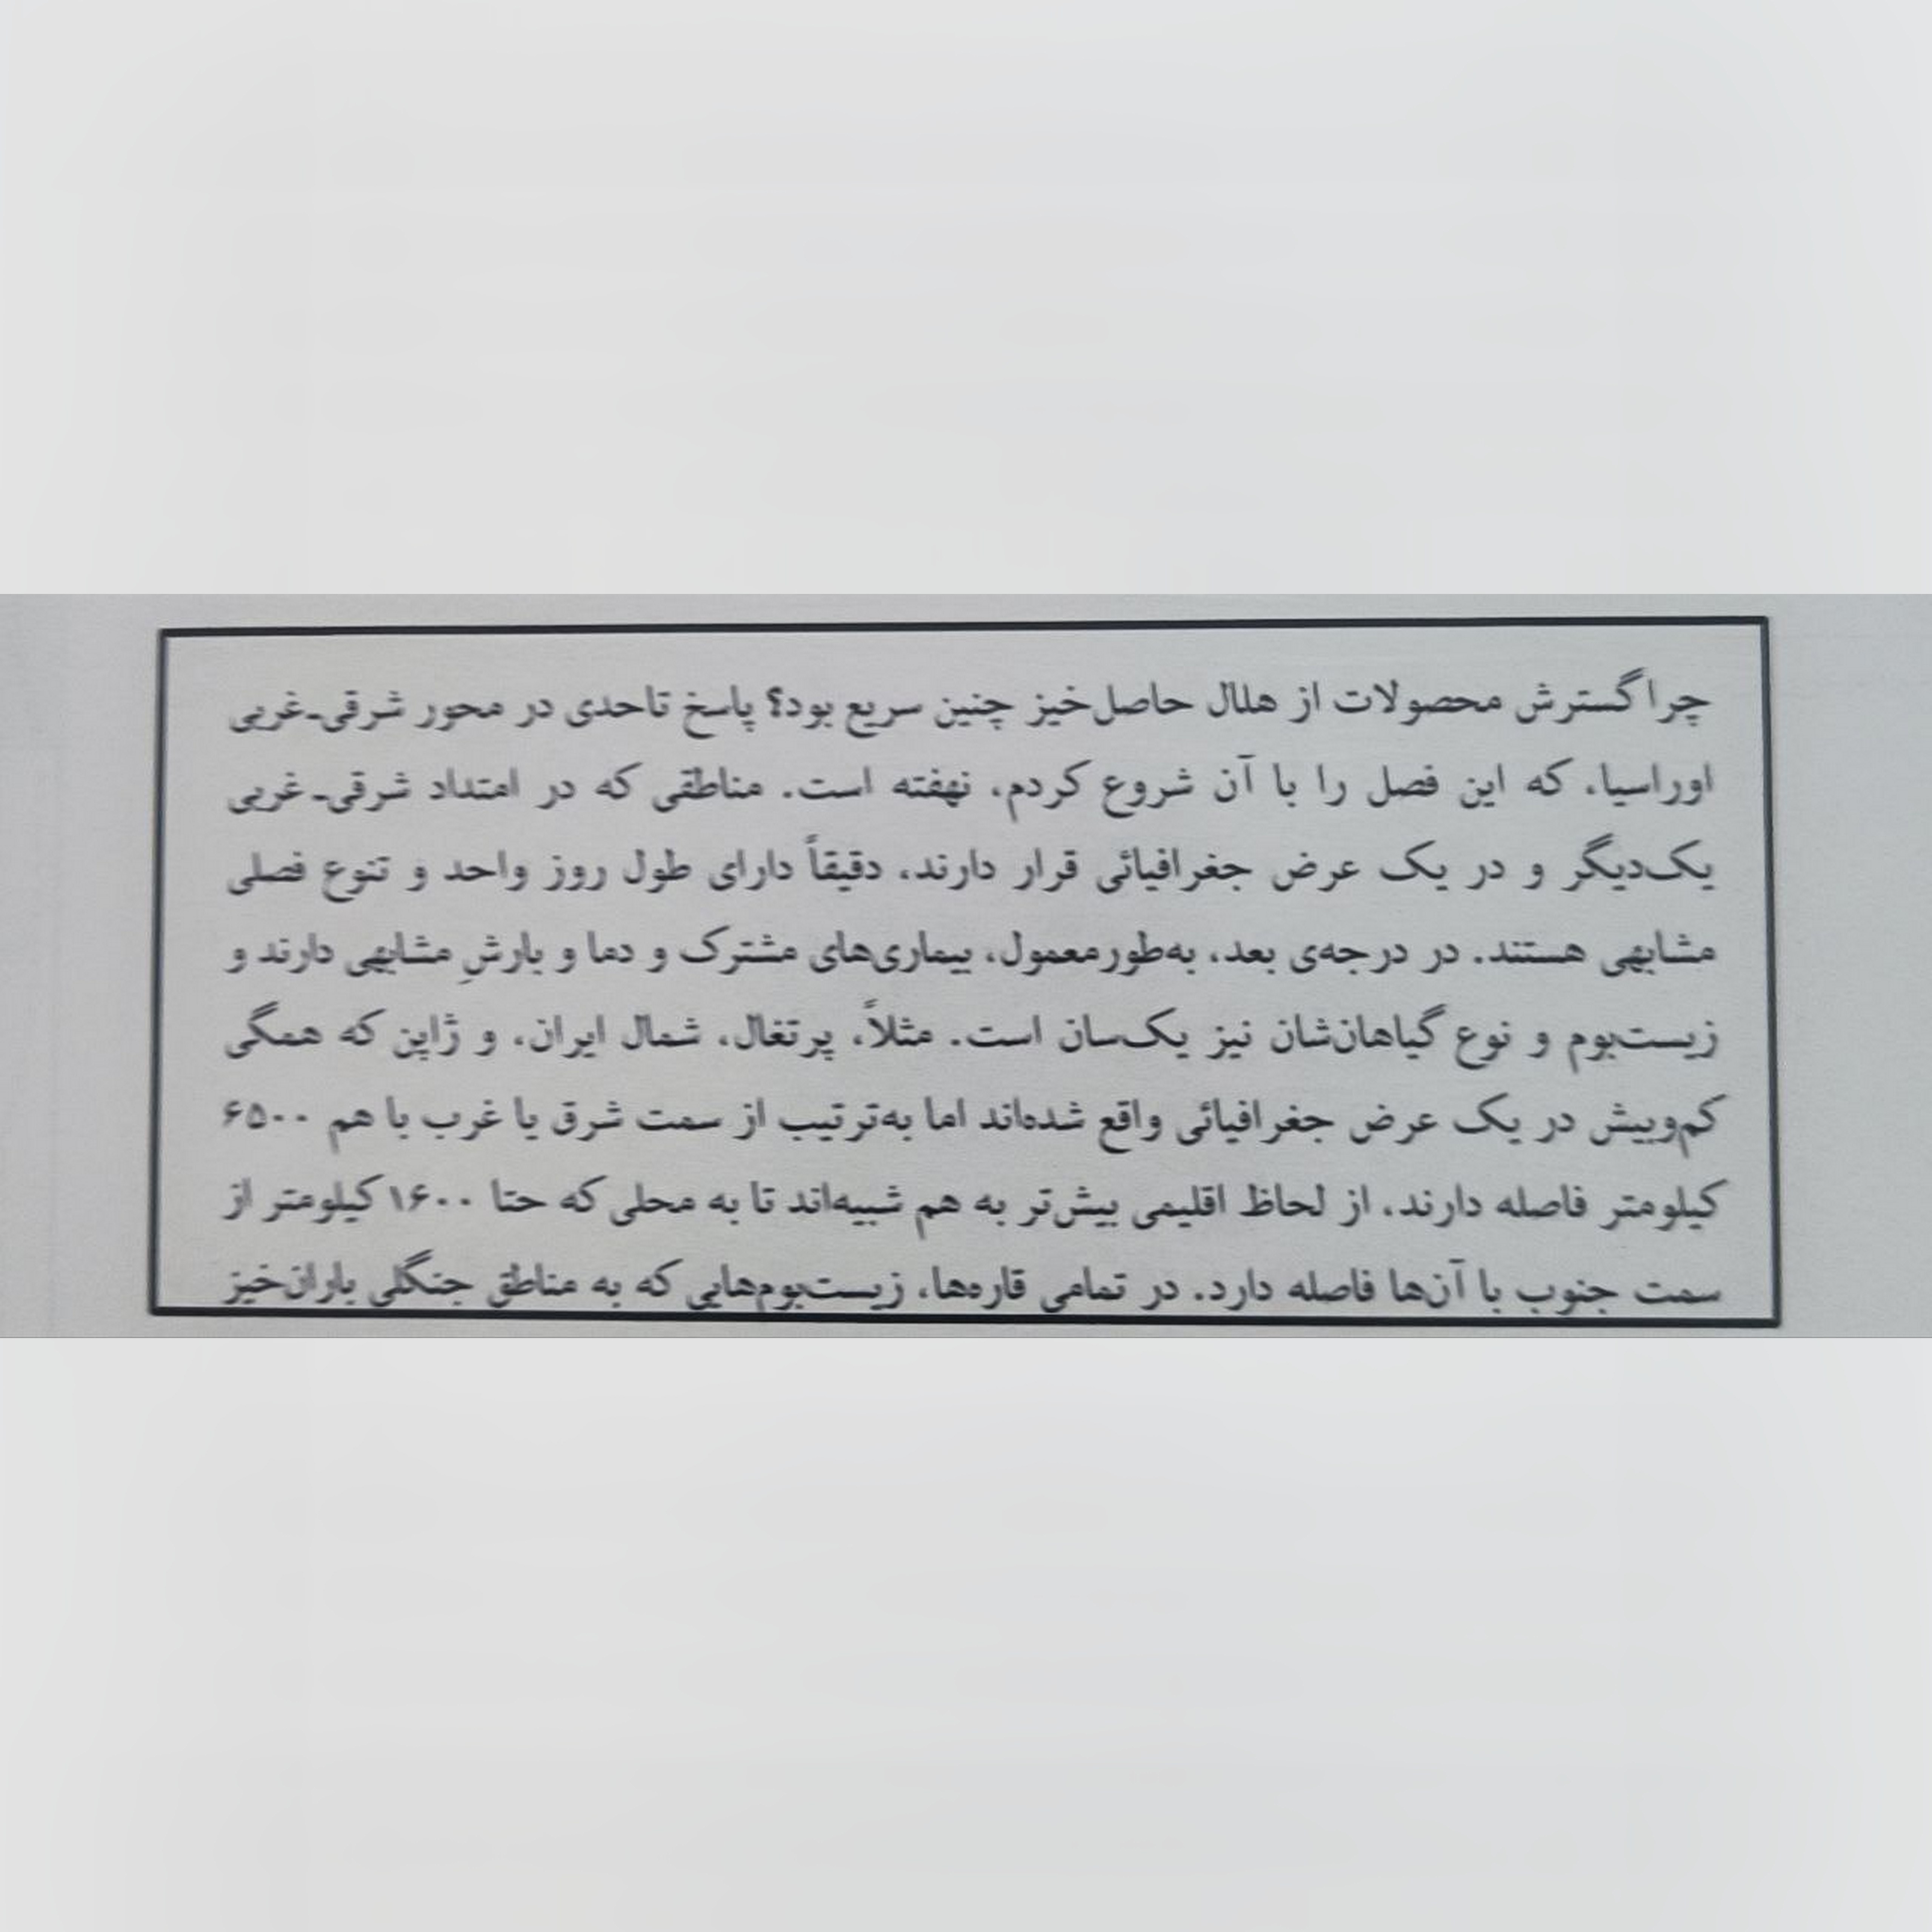 چرا گسترش محصولات از هلال حاصل‌خیز چنین سریع بود؟ پاسخ تاحدی در محور شرقی‌ـ‌غربی
اوراسیا، که این فصل را با آن شروع کردم، نهفته است. مناطقی که در امتداد شرقی‌ـ غربی
یک‌دیگر و در یک عرض جغرافیائی قرار دارند، دقیقاً دارای طول روز واحد و تنوع فصلی
مشابهی هستند. در درجه‌ی بعد، به‌طورمعمول، بیماری‌های مشترک و دما و بارشِ مشابهی دارند و
زیست‌بوم و نوع گیاهان‌شان نیز یک‌سان است. مثلاً، پرتغال، شمال ایران، و ژاپن که همگی
کم‌وبیش در یک عرض جغرافیائی واقع شده‌اند اما به‌ترتیب از سمت شرق یا غرب با هم ۶۵۰۰
کیلومتر فاصله دارند، از لحاظ اقلیمی بیش‌تر به هم شبیه‌اند تا به محلی که حتا ۱۶۰۰ کیلومتر از
سمت جنوب با آن‌ها فاصله دارد. در تمامی قاره‌ها، زیست‌بوم‌هایی که به مناطق جنگلی باران‌خیز